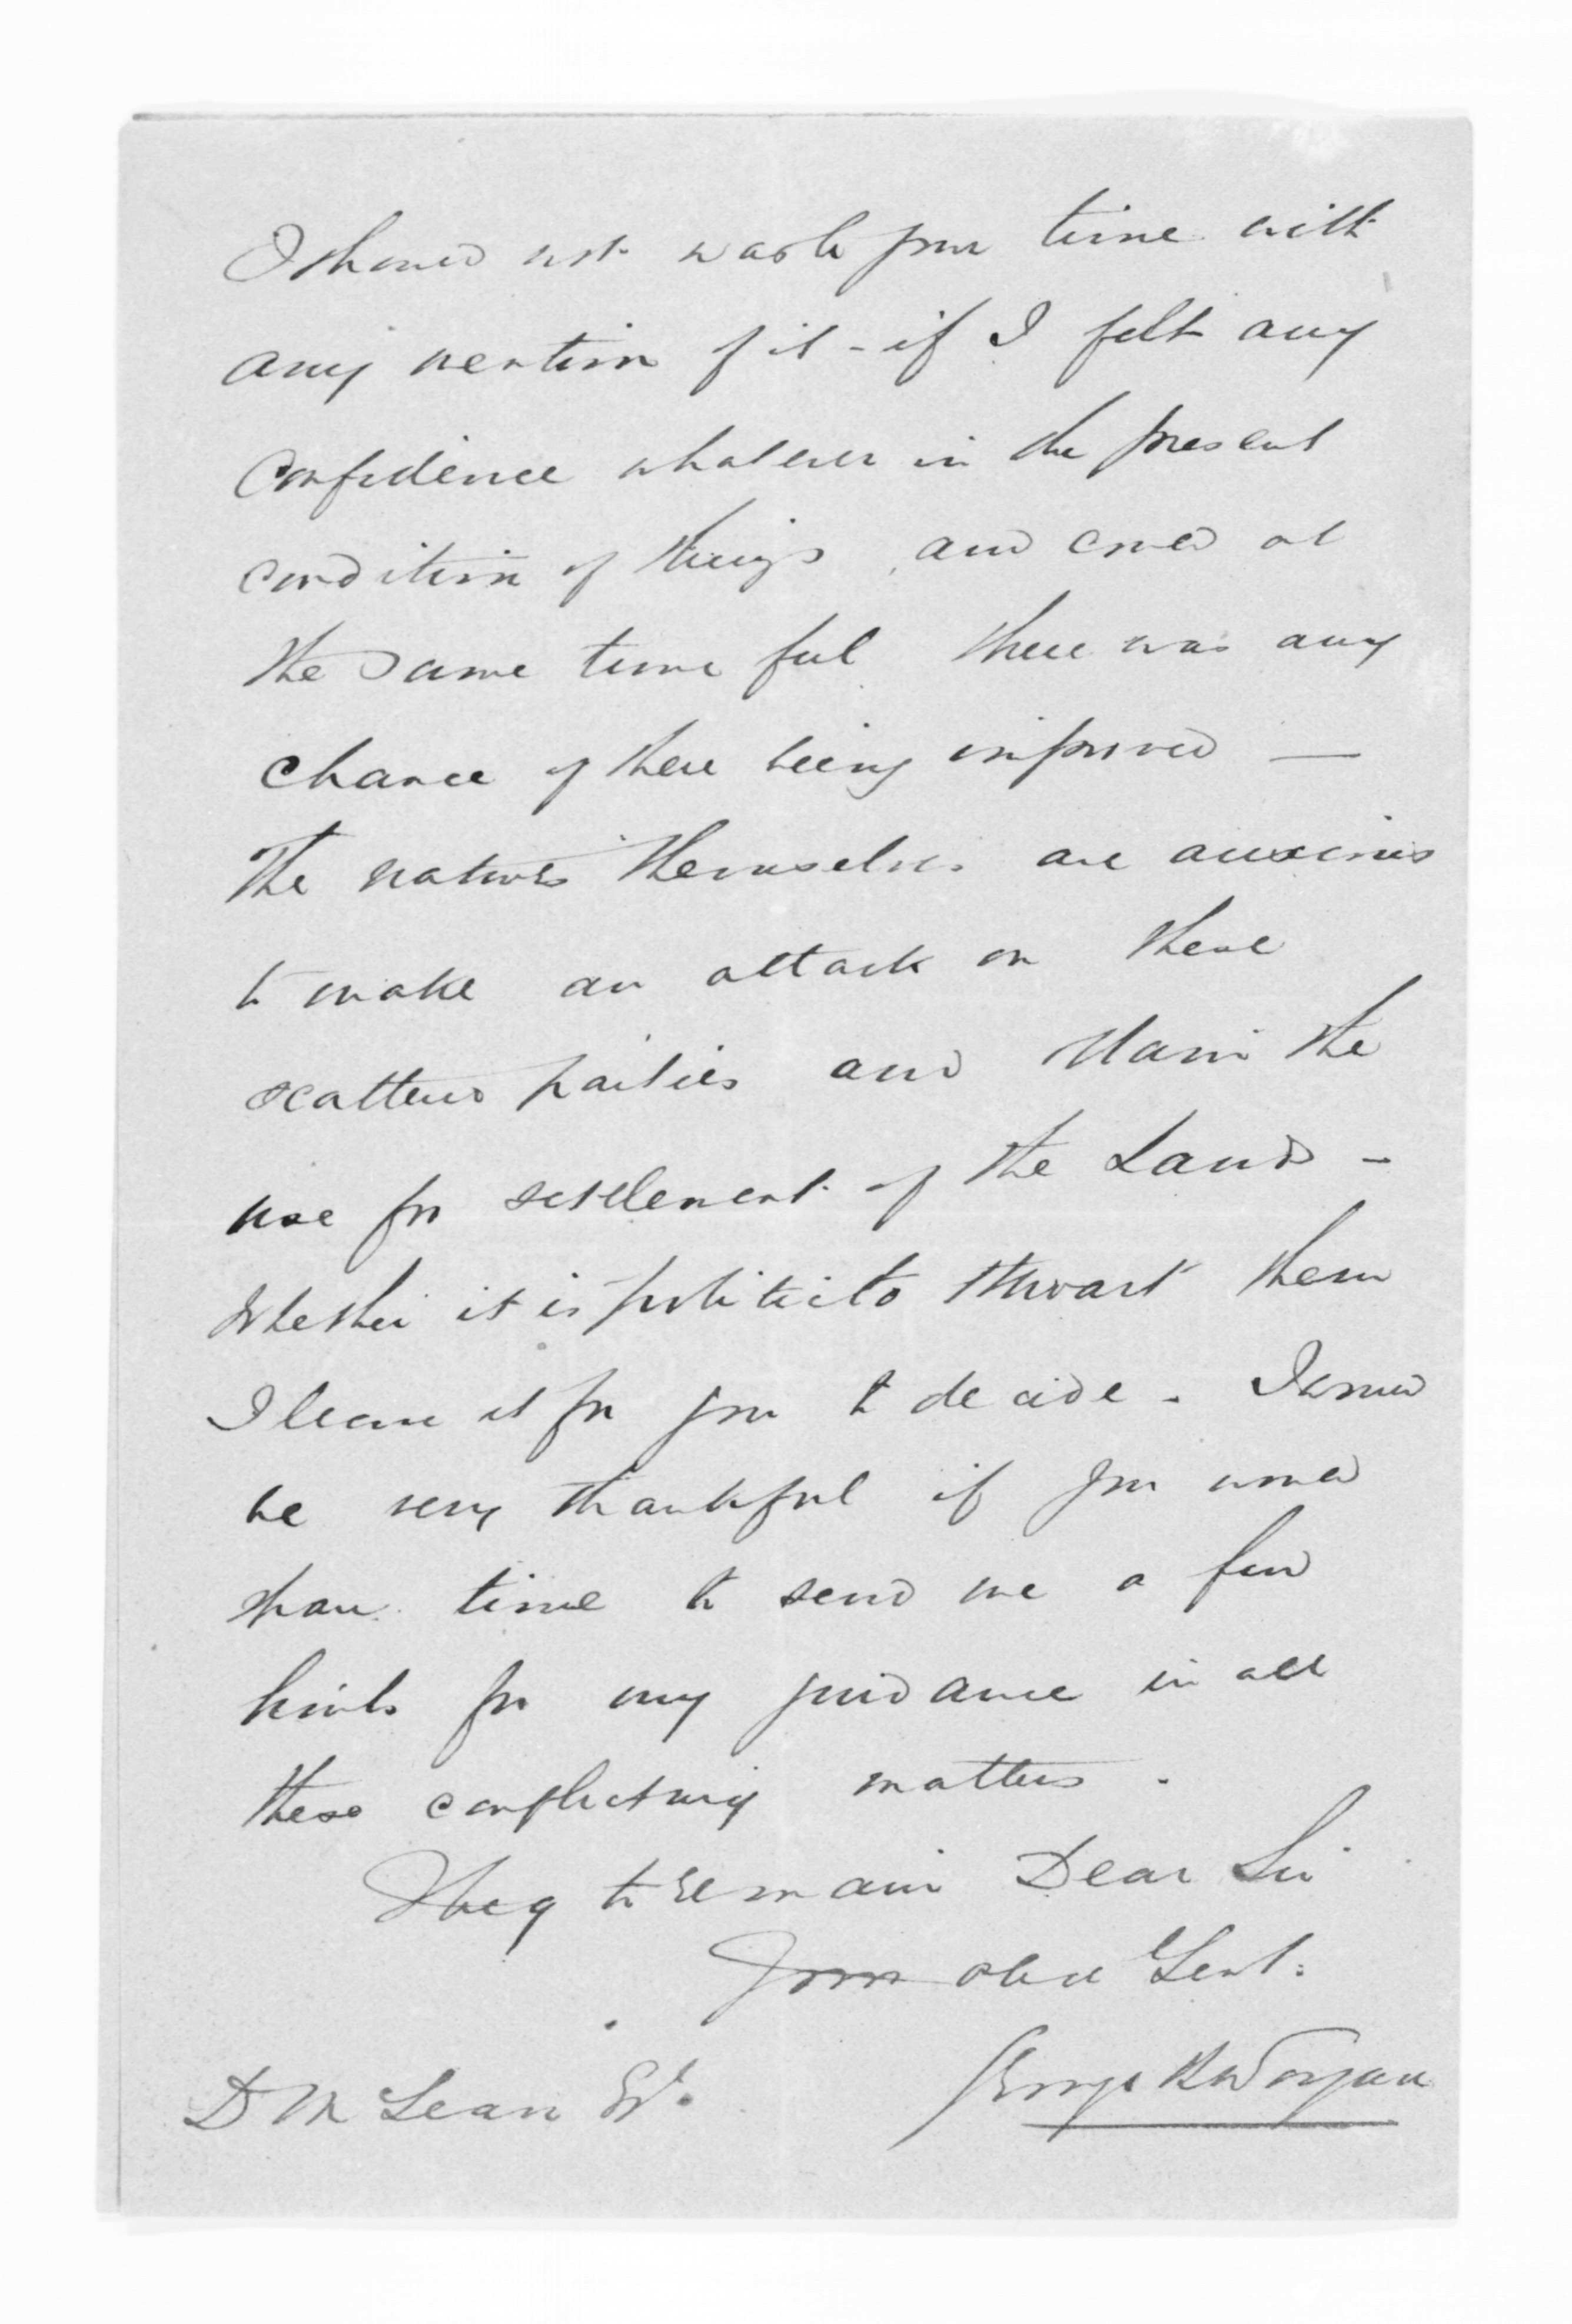 I should not waste your time with
any mention of it - if I felt any
confidence whatever in the present
condition of things, and could at
the same time feel there was any
chance of there being improved —
The natives themselves are anxious
to make an attack on these
scattered parties and claim the
use for settlement of the Lands -
Whether it is politic to thwart them
I leave it for you to decide - I would
be very thankful if you would
spare time to send me a few
hints for my guidance in all
these conflicting matters.
I beg to remain Dear Sir
Your obed Servt:
George Worgan
D McLean Esq.